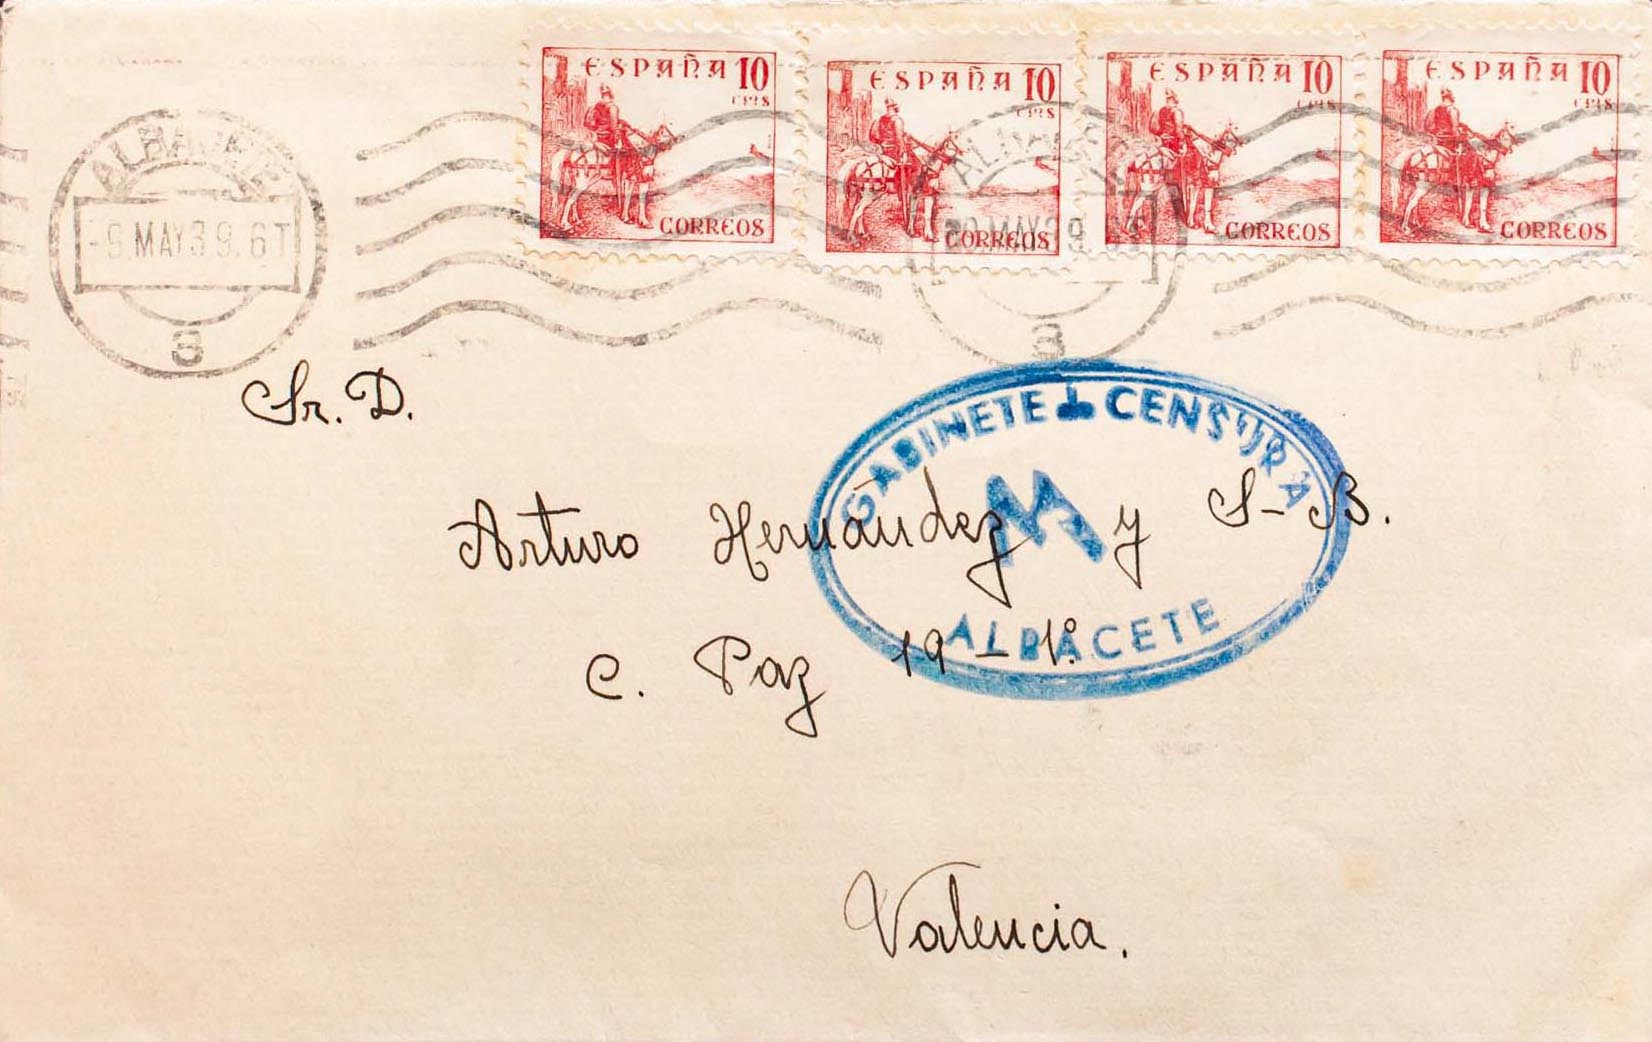 ESPAÑA 10
CTS
CORREOS
ESPAÑA 10
CTS
CORREOS
ESPAÑA 10
CTS
CORREOS
ESPAÑA 10
CTS
CORREOS
ALBACETE
-9 MAY 39. 6T
3
ALBACETE
MAY 39. 6T
3
Sr. D.
GABINETE CENSURA
ALBACETE
Arturo Hernández y S-B.
C. Paz 19-1º
Valencia.